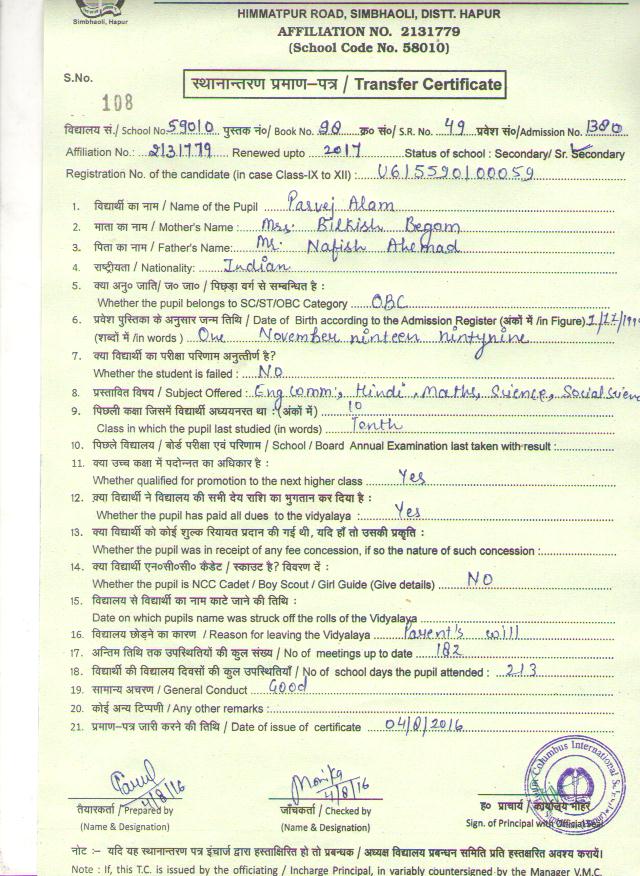 Simbhaoli, Hapur
HIMMATPUR ROAD, SIMBHAOLI, DISTT. HAPUR
AFFILIATION NO. 2131779
(School Code No. 58010)
S.No.
108
स्थानान्तरण प्रमाण–पत्र / Transfer Certificate
विद्यालय सं./ School No. 59010 पुस्तक नं०/ Book No. 90 क्र० सं०/ S.R. No. 49 प्रवेश सं०/Admission No. 1380
Affiliation No.: 2131779 Renewed upto 2017 Status of school : Secondary/ Sr. Secondary
Registration No. of the candidate (in case Class-IX to XII) : U6/55901/00059
1. विद्यार्थी का नाम / Name of the Pupil Parvej Alam
2. माता का नाम / Mother's Name : Mrs. Bilkish Begam
3. पिता का नाम / Father's Name: Mr. Nafish Ahemad
4. राष्ट्रीयता / Nationality: Indian
5. क्या अनु० जाति/ ज० जा० / पिछड़ा वर्ग से सम्बन्धित है :
Whether the pupil belongs to SC/ST/OBC Category OBC
6. प्रवेश पुस्तिका के अनुसार जन्म तिथि / Date of Birth according to the Admission Register (अंकों में /in Figure) 1/11/199
(शब्दों में/in words ) One November ninteen nintynine
7. क्या विद्यार्थी का परीक्षा परिणाम अनुत्तीर्ण है?
Whether the student is failed : NO
8. प्रस्तावित विषय / Subject Offered : Eng comm., Hindi, Maths, Science, Social Science
9. पिछली कक्षा जिसमें विद्यार्थी अध्ययनरत था : (अंकों में) 10
Class in which the pupil last studied (in words) Tenth
10. पिछले विद्यालय / बोर्ड परीक्षा एवं परिणाम / School / Board Annual Examination last taken with result :
11. क्या उच्च कक्षा में पदोन्नत का अधिकार है :
Whether qualified for promotion to the next higher class Yes
12. क्या विद्यार्थी ने विद्यालय की सभी देय राशि का भुगतान कर दिया है :
Whether the pupil has paid all dues to the vidyalaya : Yes
13. क्या विद्यार्थी को कोई शुल्क रियायत प्रदान की गई थी, यदि हाँ तो उसकी प्रकृति :
Whether the pupil was in receipt of any fee concession, if so the nature of such concession :
14. क्या विद्यार्थी एन०सी०सी० कैडेट / स्काउट है? विवरण दें :
Whether the pupil is NCC Cadet / Boy Scout / Girl Guide (Give details) NO
15. विद्यालय से विद्यार्थी का नाम काटे जाने की तिथि :
Date on which pupils name was struck off the rolls of the Vidyalaya
16. विद्यालय छोड़ने का कारण / Reason for leaving the Vidyalaya Parent's will
17. अन्तिम तिथि तक उपस्थितियों की कुल संख्य / No of meetings up to date 182
18. विद्यार्थी की विद्यालय दिवसों की कुल उपस्थितियाँ / No of school days the pupil attended : 213
19. सामान्य अचरण / General Conduct Good
20. कोई अन्य टिप्पणी / Any other remarks :
21. प्रमाण–पत्र जारी करने की तिथि / Date of issue of certificate 04/8/2016
4/8/16 Monika 4/8/16
Columbus International
तैयारकर्ता / Prepared by जाँचकर्ता / Checked by ह० प्राचार्य / कार्यालय मोहर
(Name & Designation) (Name & Designation) Sign. of Principal with Official Seal
नोट :– यदि यह स्थानान्तरण पत्र इंचार्ज द्वारा हस्ताक्षिरित हो तो प्रबन्धक / अध्यक्ष विद्यालय प्रबन्धन समिति प्रति हस्तक्षरित अवश्य करायें।
Note : If, this T.C. is issued by the officiating / Incharge Principal, in variably countersigned by the Manager V.M.C.